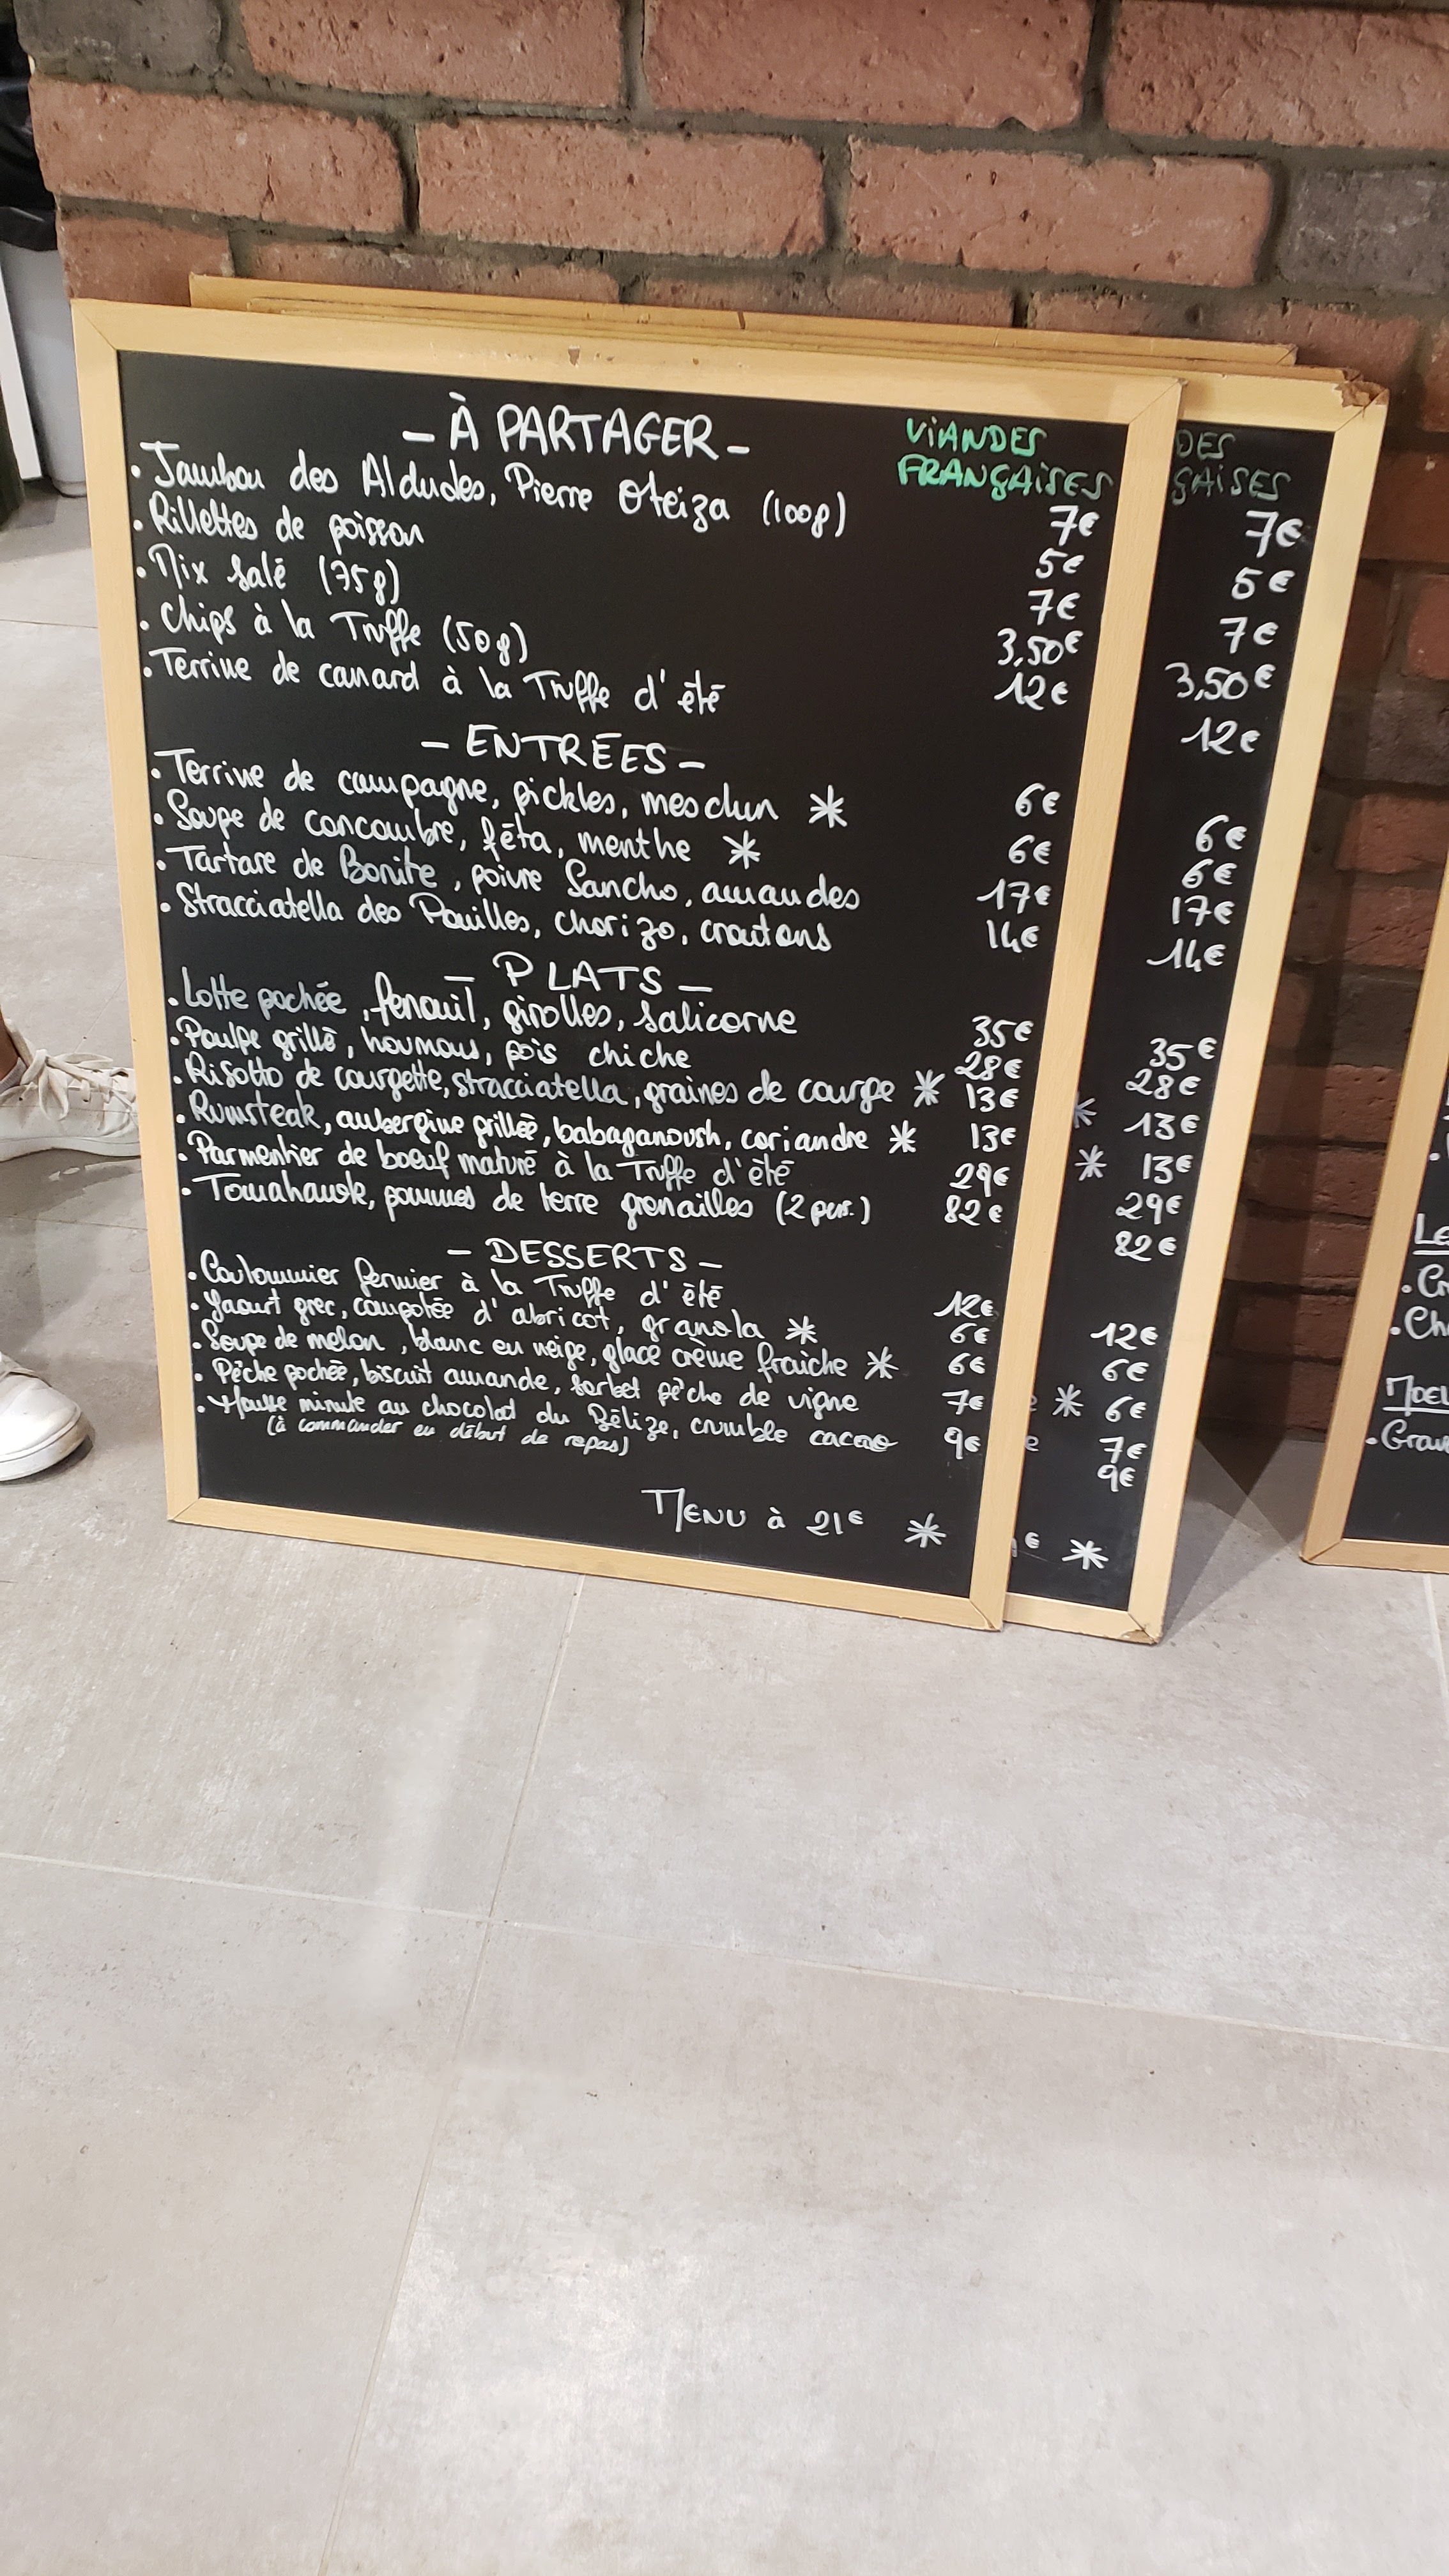 - À PARTAGER -
VIANDES
FRANÇAISES
. Jambon des Aldudes, Pierre Oteiza (100g) 7€
. Rillettes de poisson 5€
. Mix salé (75g) 7€
. Chips à la Truffe (50g) 3,50€
. Terrine de canard à la Truffe d'été 12€
- ENTRÉES -
. Terrine de campagne, pickles, mesclun * 6€
. Soupe de concombre, fêta, menthe * 6€
. Tartare de Bonite, poivre Sancho, amandes 17€
. Stracciatella des Pouilles, chorizo, croutons 14€
- PLATS -
. Lotte pochée, fenouil, girolles, salicorne 35€
. Poulpe grillé, houmous, pois chiche 28€
. Risotto de courgette, stracciatella, graines de courge * 13€
. Rumsteak, aubergine grillée, babaganoush, coriandre * 13€
. Parmentier de boeuf maturé à la Truffe d'été 29€
. Tomahawk, pommes de terre grenailles (2 pers.) 82€
- DESSERTS -
. Coulommier fermier à la Truffe d'été 12€
. Yaourt grec, compotée d'abricot, granola * 6€
. Soupe de melon, blanc en neige, glace crème fraiche * 6€
. Pêche pochée, biscuit amande, sorbet pêche de vigne 7€
. Mousse minute au chocolat du Bélize, crumble cacao 9€
(à commander en début de repas)
MENU à 21€ *
DES
ÇAISES
7€
5€
7€
3,50€
12€
6€
6€
17€
14€
35€
28€
* 13€
* 13€
29€
82€
12€
6€
* 6€
e 7€
9€
€ *
Le
. Cr
. Ch
Moel
. Gran